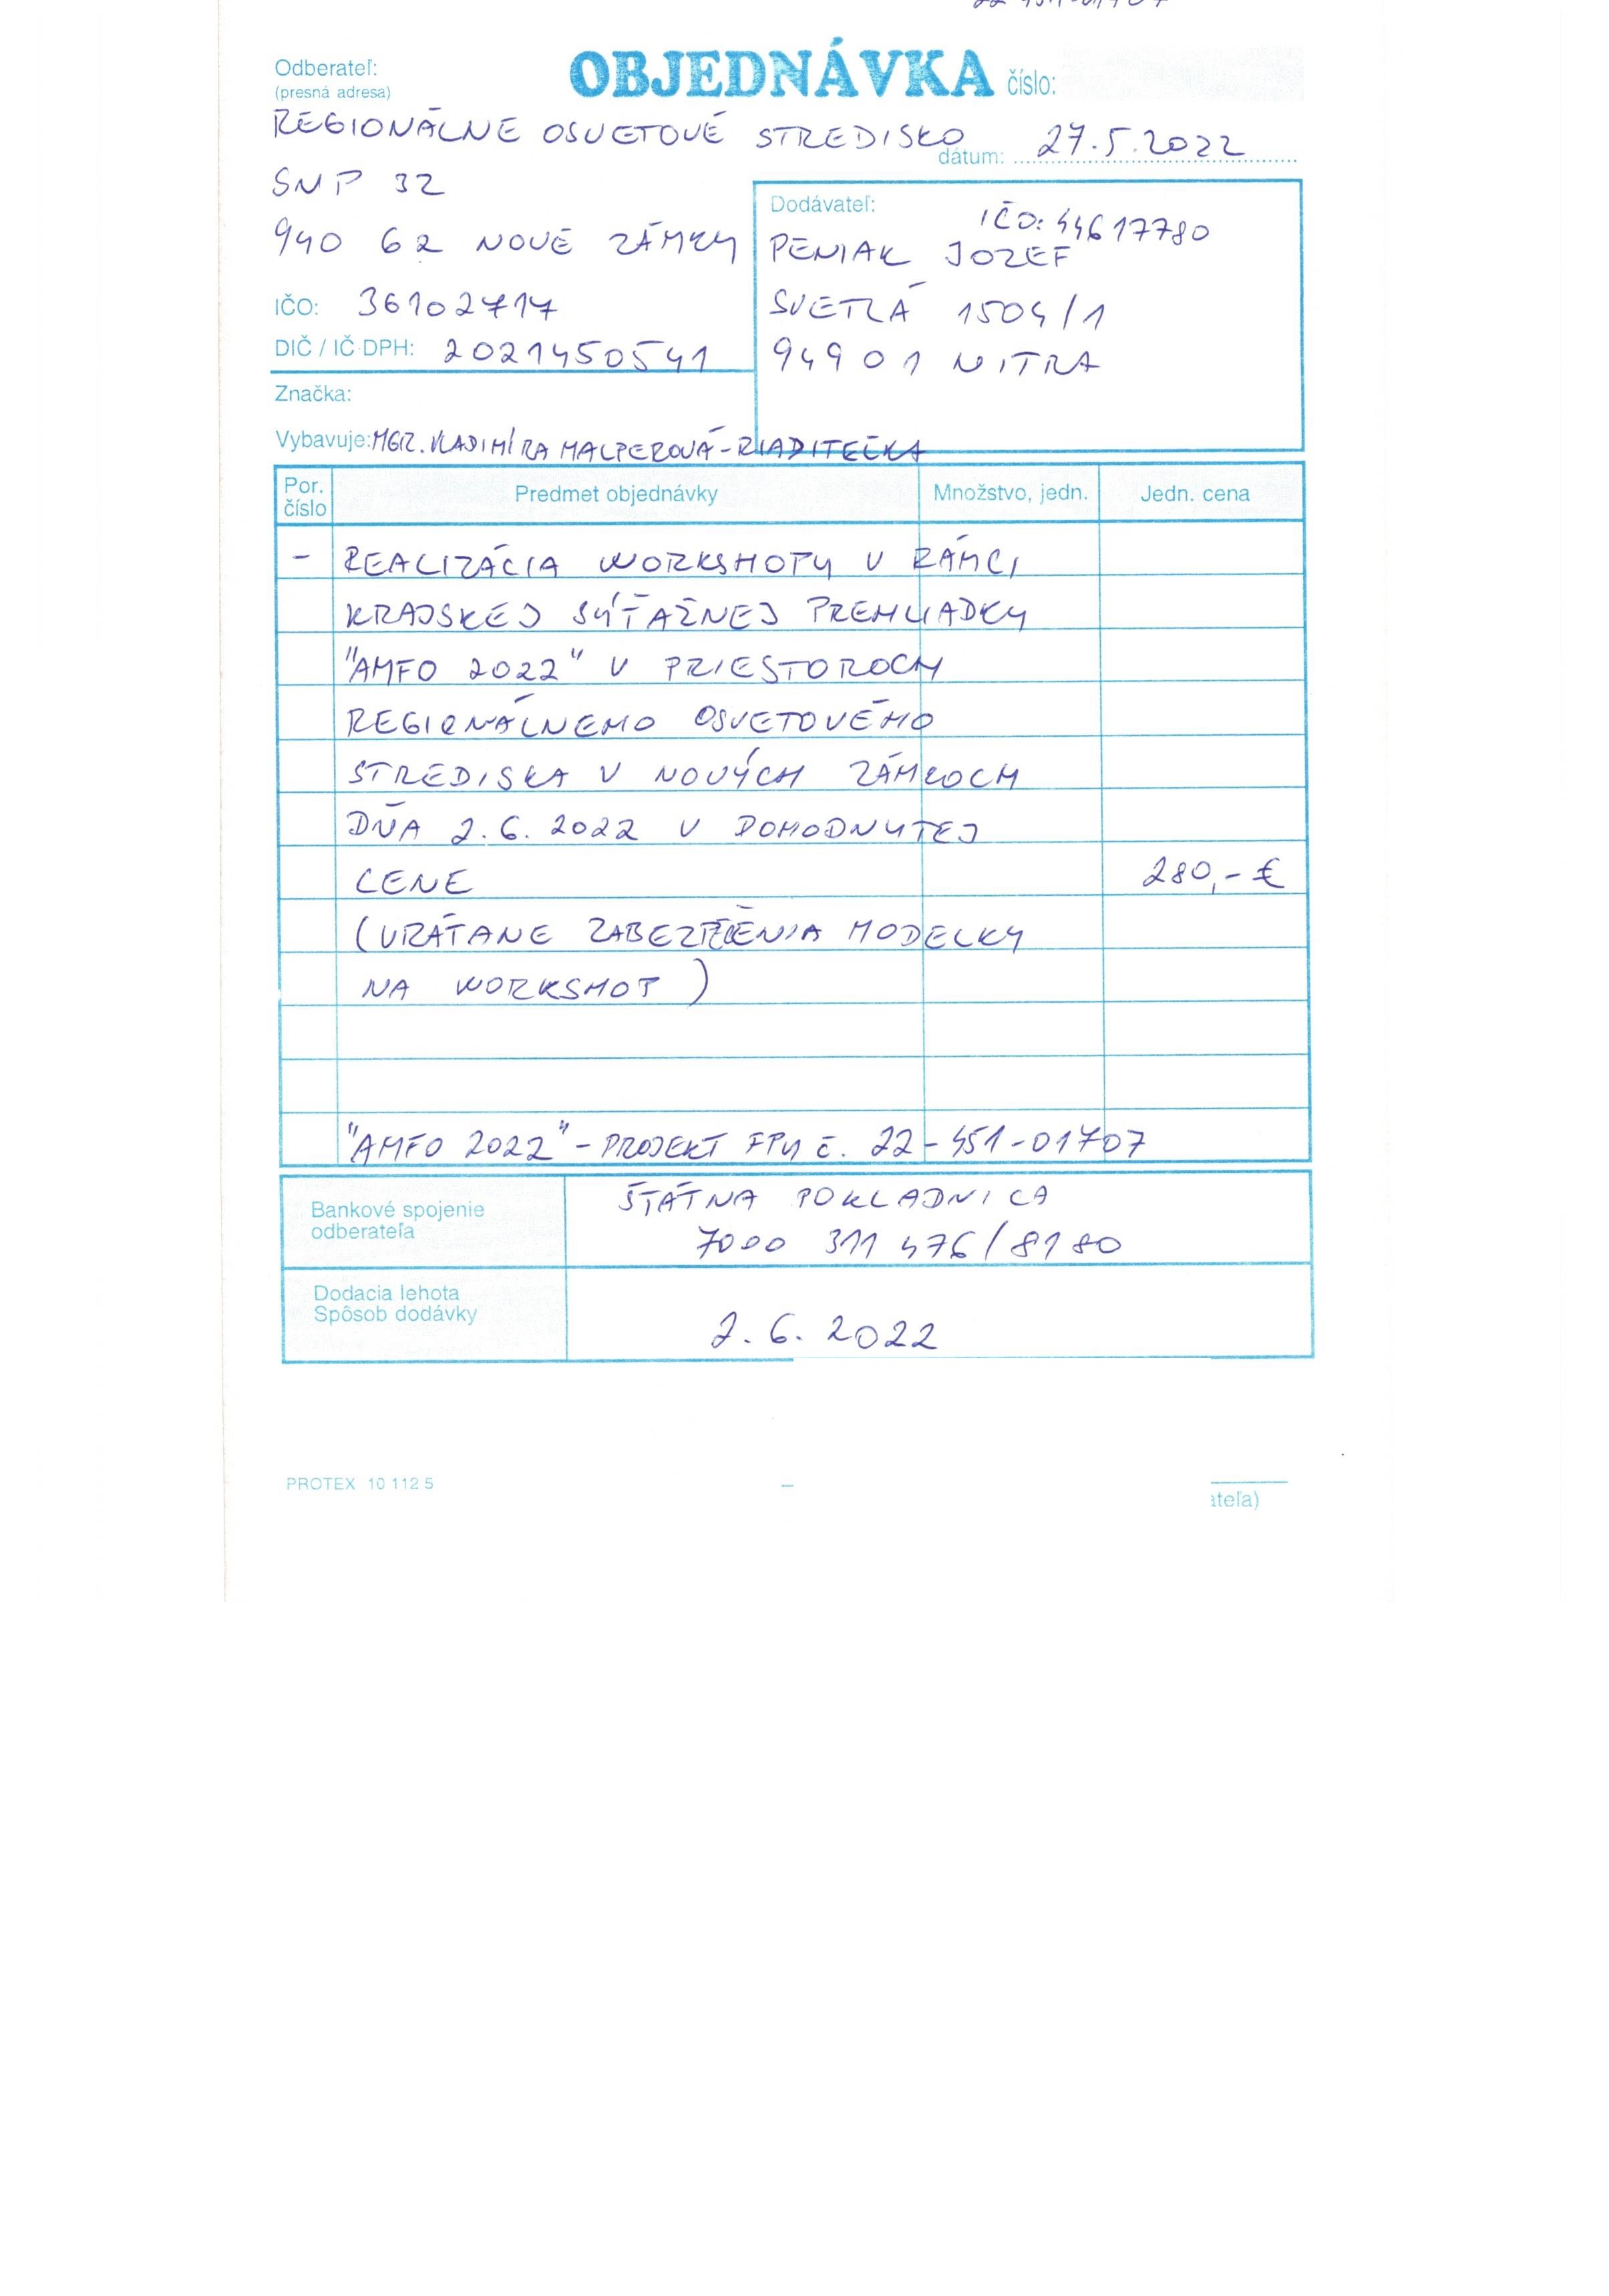 Odberateľ:
(presná adresa)
OBJEDNÁVKA číslo:
REGIONÁLNE OSVETOVÉ STREDISKO
dátum: 27.5.2022
SNP 32
940 62 NOVÉ ZÁMKY
IČO: 36102717
DIČ / IČ DPH: 2021450541
Značka:
Vybavuje: MGR. VLADIMÍRA MALPEROVÁ-RIADITEĽKA
Dodávateľ:
IČO: 44617780
PENIAK JOZEF
SVETLÁ 1504/1
94901 NITRA
Por. číslo Predmet objednávky Množstvo, jedn. Jedn. cena
- REALIZÁCIA WORKSHOPU V RÁMCI
KRAJSKEJ SÚŤAŽNEJ PREHLIADKY
"AMFO 2022" V PRIESTOROCH
REGIONÁLNEHO OSVETOVÉHO
STREDISKA V NOVÝCH ZÁMKOCH
DŇA 2.6.2022 V DOHODNUTEJ
CENE 280,- €
(VRÁTANE ZABEZPEČENIA MODELKY
NA WORKSHOP)
"AMFO 2022" - PROJEKT FPU č. 22-451-01707
Bankové spojenie
odberateľa
ŠTÁTNA POKLADNICA
7000 311 476/8180
Dodacia lehota
Spôsob dodávky
2.6.2022
PROTEX 10 112 5
ateľa)